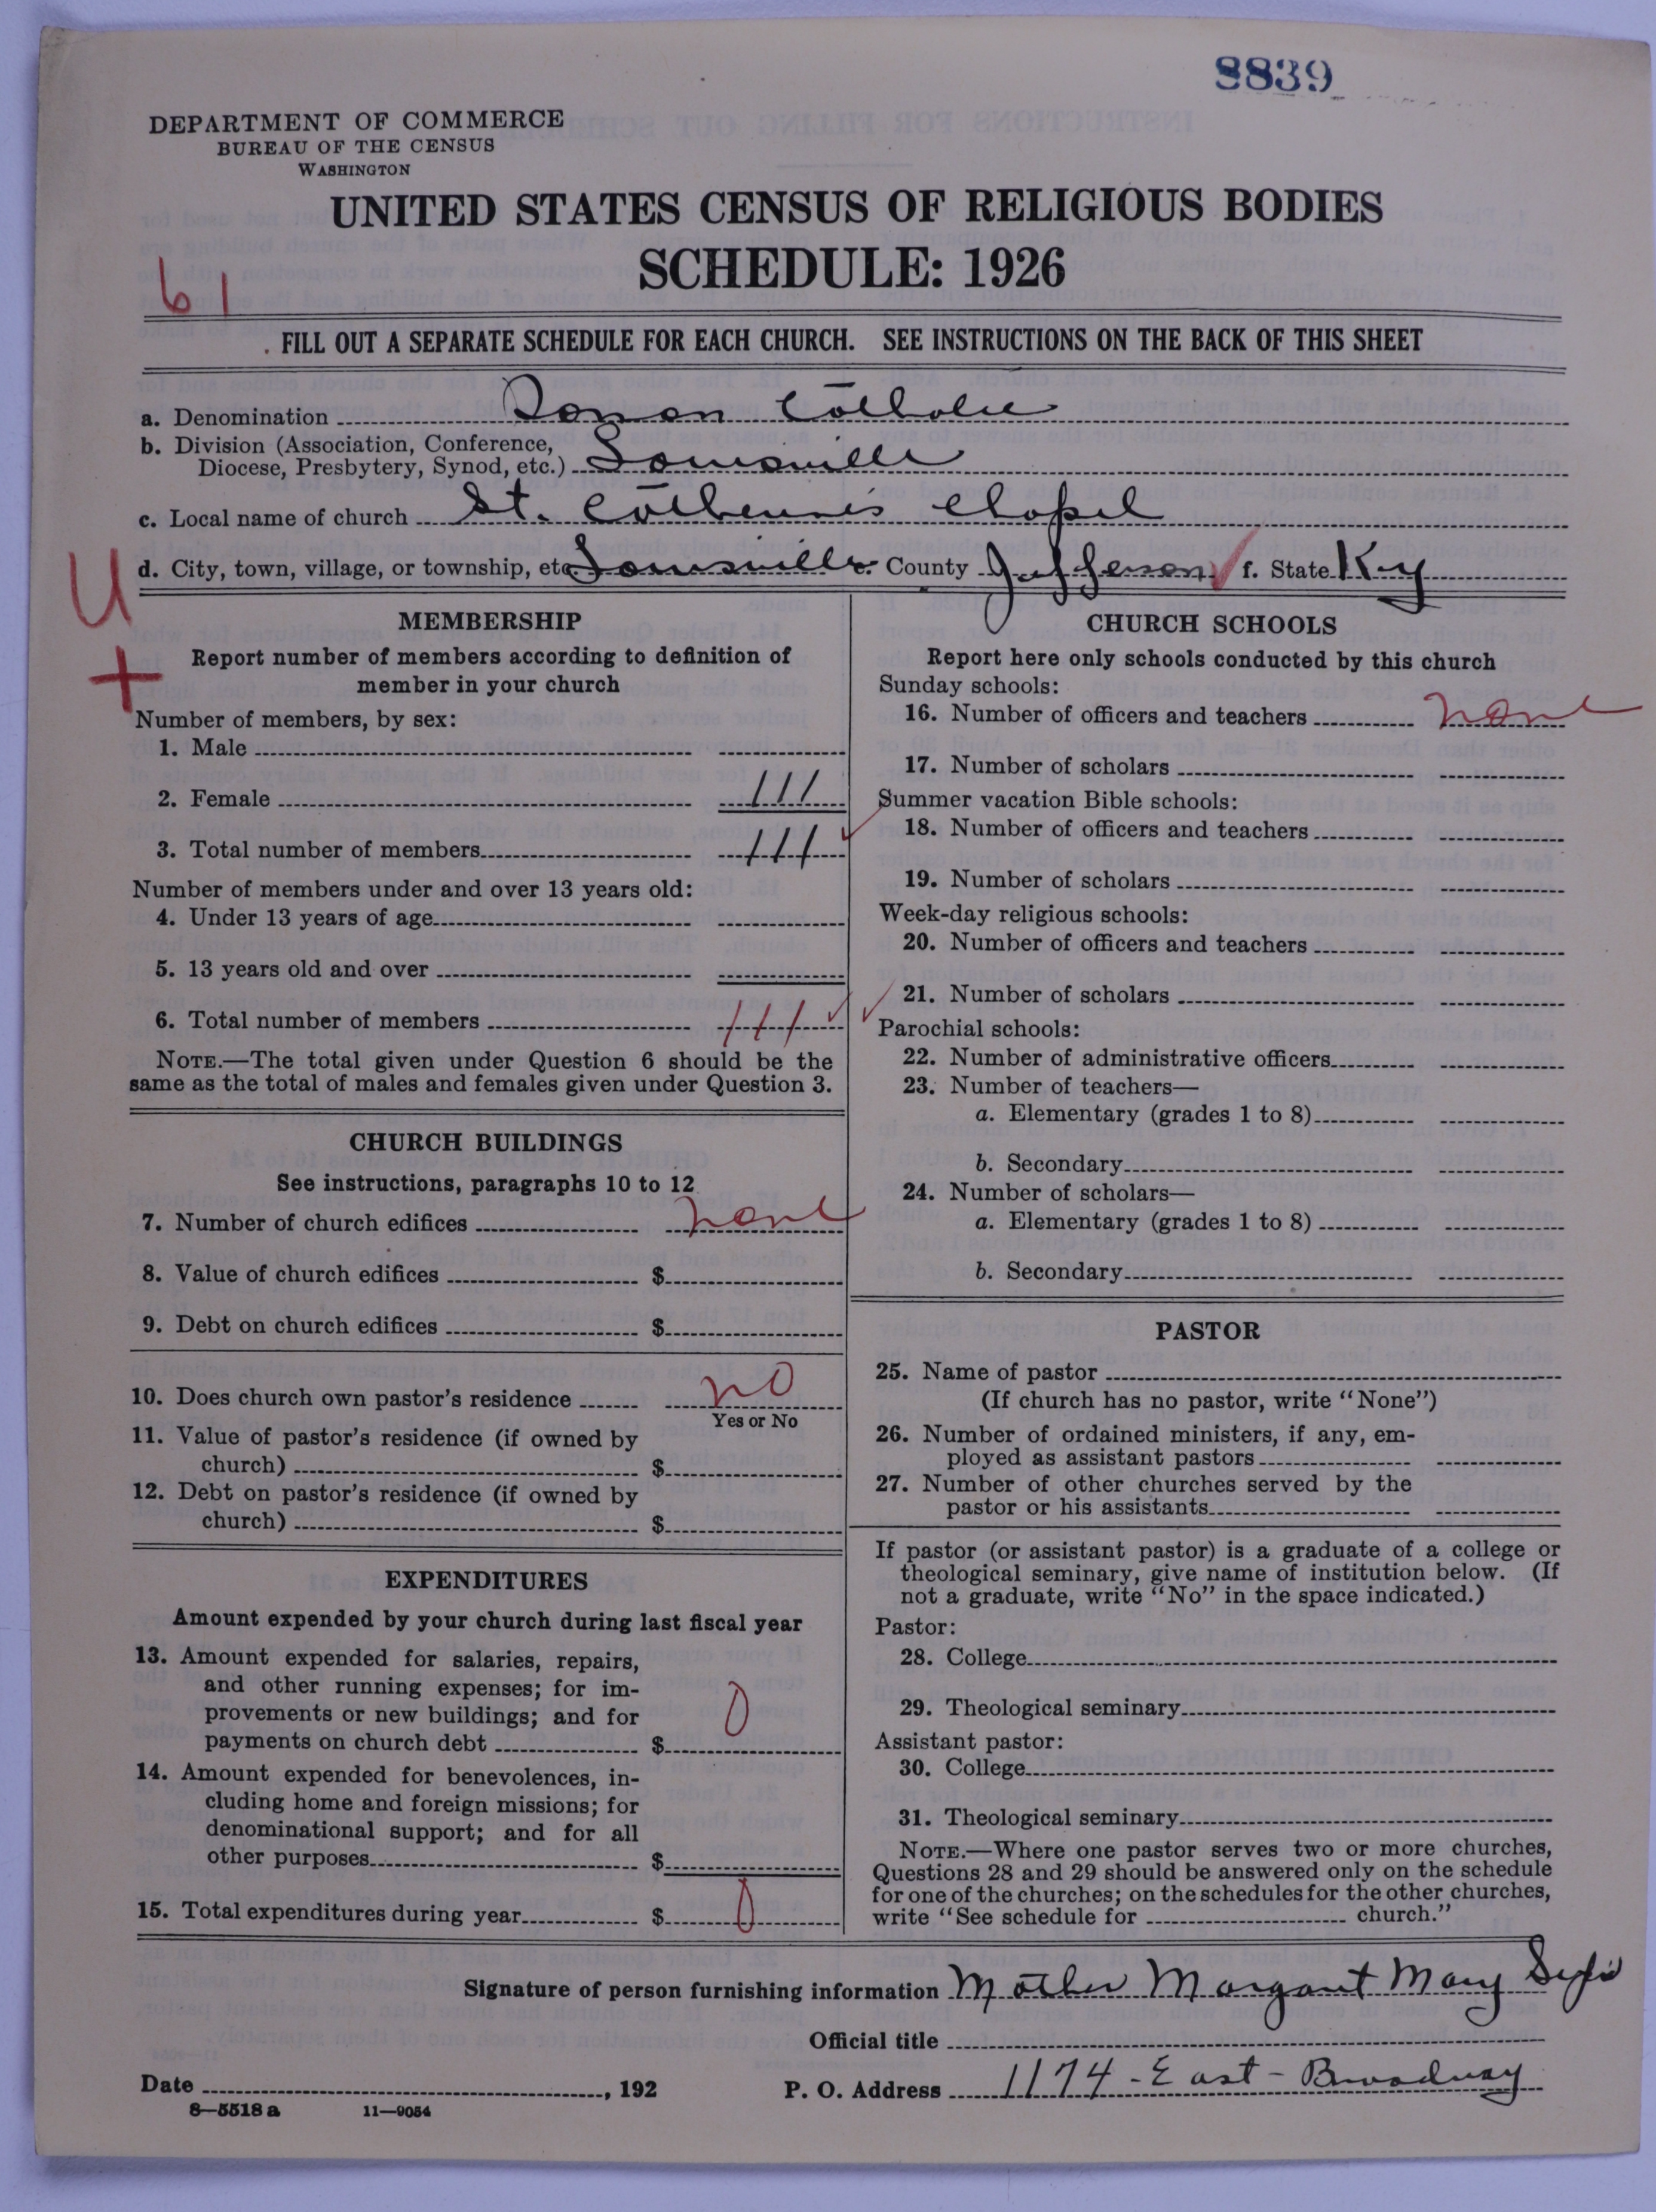 8839
DEPARTMENT OF COMMERCE
BUREAU OF THE CENSUS
WASHINGTON
UNITED STATES CENSUS OF RELIGIOUS BODIES
SCHEDULE: 1926
61
FILL OUT A SEPARATE SCHEDULE FOR EACH CHURCH. SEE INSTRUCTIONS ON THE BACK OF THIS SHEET
a. Denomination Roman Catholic
b. Division (Association, Conference,
Diocese, Presbytery, Synod, etc.) Louisville
c. Local name of church St. Catherine's Chapel
d. City, town, village, or township, etc Louisville e. County Jefferson f. State Ky
U
+
MEMBERSHIP
Report number of members according to definition of
member in your church
Number of members, by sex:
1. Male
2. Female 111
3. Total number of members 111
Number of members under and over 13 years old:
4. Under 13 years of age
5. 13 years old and over
6. Total number of members 111
NOTE.—The total given under Question 6 should be the
same as the total of males and females given under Question 3.
CHURCH BUILDINGS
See instructions, paragraphs 10 to 12
7. Number of church edifices none
8. Value of church edifices $
9. Debt on church edifices $
10. Does church own pastor's residence no
Yes or No
11. Value of pastor's residence (if owned by
church) $
12. Debt on pastor's residence (if owned by
church) $
EXPENDITURES
Amount expended by your church during last fiscal year
13. Amount expended for salaries, repairs,
and other running expenses; for im-
provements or new buildings; and for
payments on church debt $ 0
14. Amount expended for benevolences, in-
cluding home and foreign missions; for
denominational support; and for all
other purposes $
15. Total expenditures during year $ 0
CHURCH SCHOOLS
Report here only schools conducted by this church
Sunday schools:
16. Number of officers and teachers none
17. Number of scholars
Summer vacation Bible schools:
18. Number of officers and teachers
19. Number of scholars
Week-day religious schools:
20. Number of officers and teachers
21. Number of scholars
Parochial schools:
22. Number of administrative officers
23. Number of teachers—
a. Elementary (grades 1 to 8)
b. Secondary
24. Number of scholars—
a. Elementary (grades 1 to 8)
b. Secondary
PASTOR
25. Name of pastor
(If church has no pastor, write "None")
26. Number of ordained ministers, if any, em-
ployed as assistant pastors
27. Number of other churches served by the
pastor or his assistants
If pastor (or assistant pastor) is a graduate of a college or
theological seminary, give name of institution below. (If
not a graduate, write "No" in the space indicated.)
Pastor:
28. College
29. Theological seminary
Assistant pastor:
30. College
31. Theological seminary
NOTE.—Where one pastor serves two or more churches,
Questions 28 and 29 should be answered only on the schedule
for one of the churches; on the schedules for the other churches,
write "See schedule for church."
Signature of person furnishing information Mother Margaret Mary
Official title
Date , 192 P. O. Address 1174 - East - Broadway
8—5518 a 11—9054